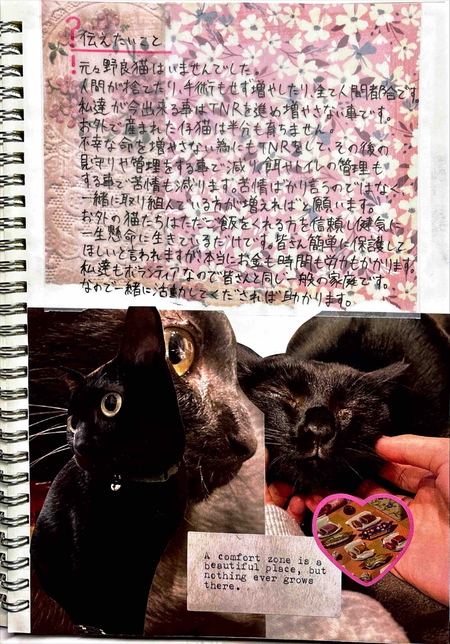 ?
!
伝えたいこと
元々野良猫はいませんでした。
人間が捨てたり、手術もせず増やしたり、全て人間都合です。
私達が今出来る事はTNRを進め増やさない事です。
お外で産まれた仔猫は半分も育ちません。
不幸な命を増やさない為にもTNRをして、その後の
見守りや管理をする事で減り、餌やトイレの管理も
する事で苦情も減ります。苦情ばかり言うのではなく、
一緒に取り組んでいる方が増えればと願います。
お外の猫たちはただご飯をくれる方を信頼し健気に
一生懸命に生きているだけです。皆さん簡単に保護して
ほしいと言われますが、本当にお金も時間も労力もかかります。
私達もボランティアなので皆さんと同じ一般の家庭です。
なので一緒に活動してくだされば助かります。
A comfort zone is a
beautiful place, but
nothing ever grows
there.